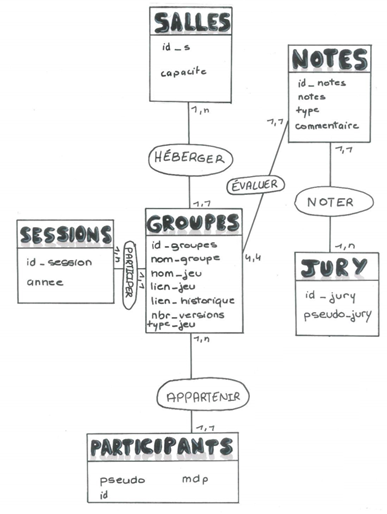 SALLES
id_s
capacite
1,n
HÉBERGER
1,1
NOTES
id_notes
notes
type
commentaire
1,1
1,1
ÉVALUER
NOTER
4,4
1,n
SESSIONS
id_session
annee
1,n
PARTICIPER
1,1
GROUPES
id_groupes
nom_groupe
nom_jeu
lien_jeu
lien_historique
nbr_versions
type_jeu
1,n
JURY
id_jury
pseudo_jury
APPARTENIR
1,1
PARTICIPANTS
pseudo mdp
id